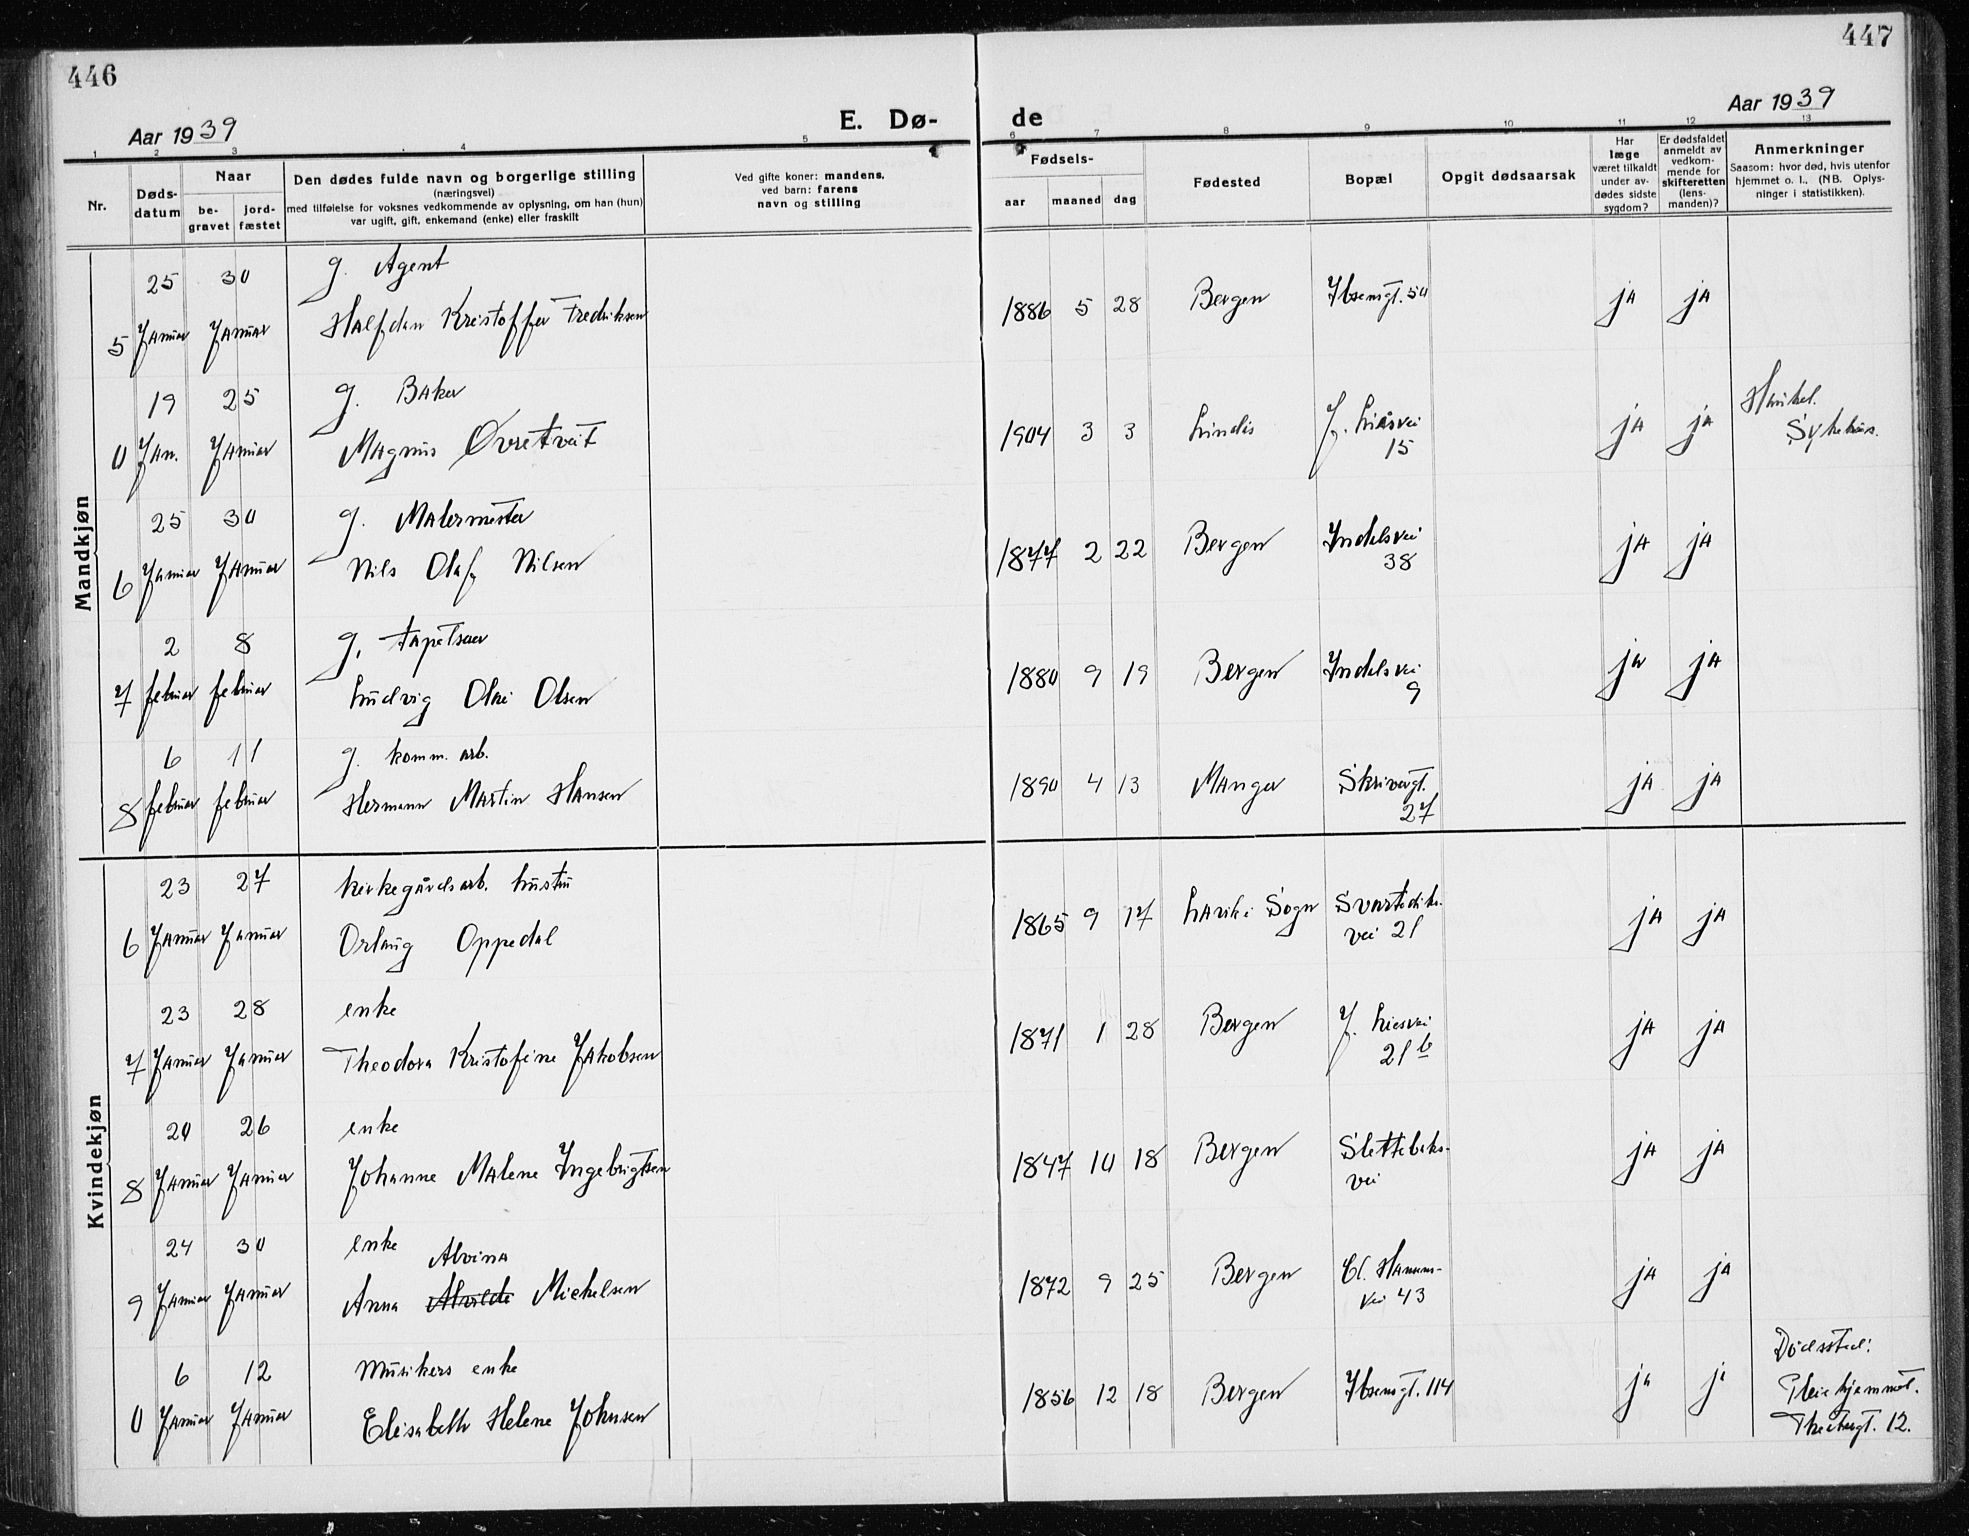 446
447
Aar 1939
E. Dø-
de
Aar 1939
1 2 3 4 5 6 7 8 9 10 11 12 13
Nr.
Døds-
datum
Naar
be-
gravet
jord-
fæstet
Den dødes fulde navn og borgerlige stilling
(næringsvei)
med tilføielse for voksnes vedkommende av oplysning, om han (hun)
var ugift, gift, enkemand (enke) eller fraskilt
Ved gifte koner: mandens,
ved barn: farens
navn og stilling
Fødsels-
aar maaned dag
Fødested
Bopæl
Opgit dødsaarsak
Har
læge
været tilkaldt
under av-
dødes sidste
sygdom?
Er dødsfaldet
anmeldt av
vedkom-
mende for
skifteretten
(lens-
manden)?
Anmerkninger
Saasom: hvor død, hvis utenfor
hjemmet o. l., (NB. Oplys-
ninger i statistikken).
Mandkjøn
25 30 g. Agent
5 Januar Januar Halfdan Kristoffer Fredriksen 1886 5 28 Bergen Ibsensgt. 50 ja ja
19 25 g. Baker
0 Jan. Januar Magnus Øvretveit 1904 3 3 Lindås J. Liesvei
15 ja ja
Haukel.
Sykehus.
25 30 g. Malermester
6 Januar Januar Nils Olaf Nilsen 1877 2 22 Bergen Indalsvei
38 ja ja
2 8 g. tapetserer
7 februar februar Ludvig Olai Olsen 1880 9 19 Bergen Indalsvei
9 ja ja
6 11 g. komm. arb.
8 februar februar Hermann Martin Hansen 1890 4 13 Manger Skrivergt.
27 ja ja
Kvindekjøn
23 27 kirkegårdsarb. hustru
6 Januar Januar Orlaug Oppedal 1865 9 17 Lavik i Sogn Svartediks-
vei 21 ja ja
23 28 enke
7 Januar Januar Theodora Kristofine Jakobsen 1871 1 28 Bergen J. Liesvei
21 b ja ja
20 26 enke
8 Januar Januar Johanne Malene Ingebrigtsen 1847 10 18 Bergen Slettebaks-
vei ja ja
24 30 enke Alvina
9 Januar Januar Anna Alvilde Michelsen 1872 9 25 Bergen Cl. Hanssens-
vei 43 ja ja
6 12 Musikers enke
0 Januar Januar Elisabeth Helene Johnsen 1856 12 18 Bergen Ibsensgt. 114 ja ja
Dødssted:
Pleiehjemmet.
12.